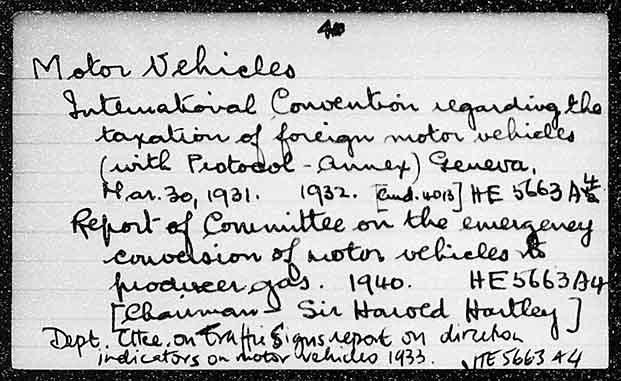 40
Motor Vehicles
International Convention regarding the
taxation of foreign motor vehicles
(with Protocol - annex) Geneva,
Mar. 30, 1931. 1932. [Cmd. 4013] HE 5663 A4
Report of Committee on the emergency
conversion of motor vehicles to
producer gas. 1940. HE5663A4
[Chairman - Sir Harold Hartley]
Dept. Cttee. on Traffic Signs report on direction
indicators on motor vehicles 1933. HE5663 A4